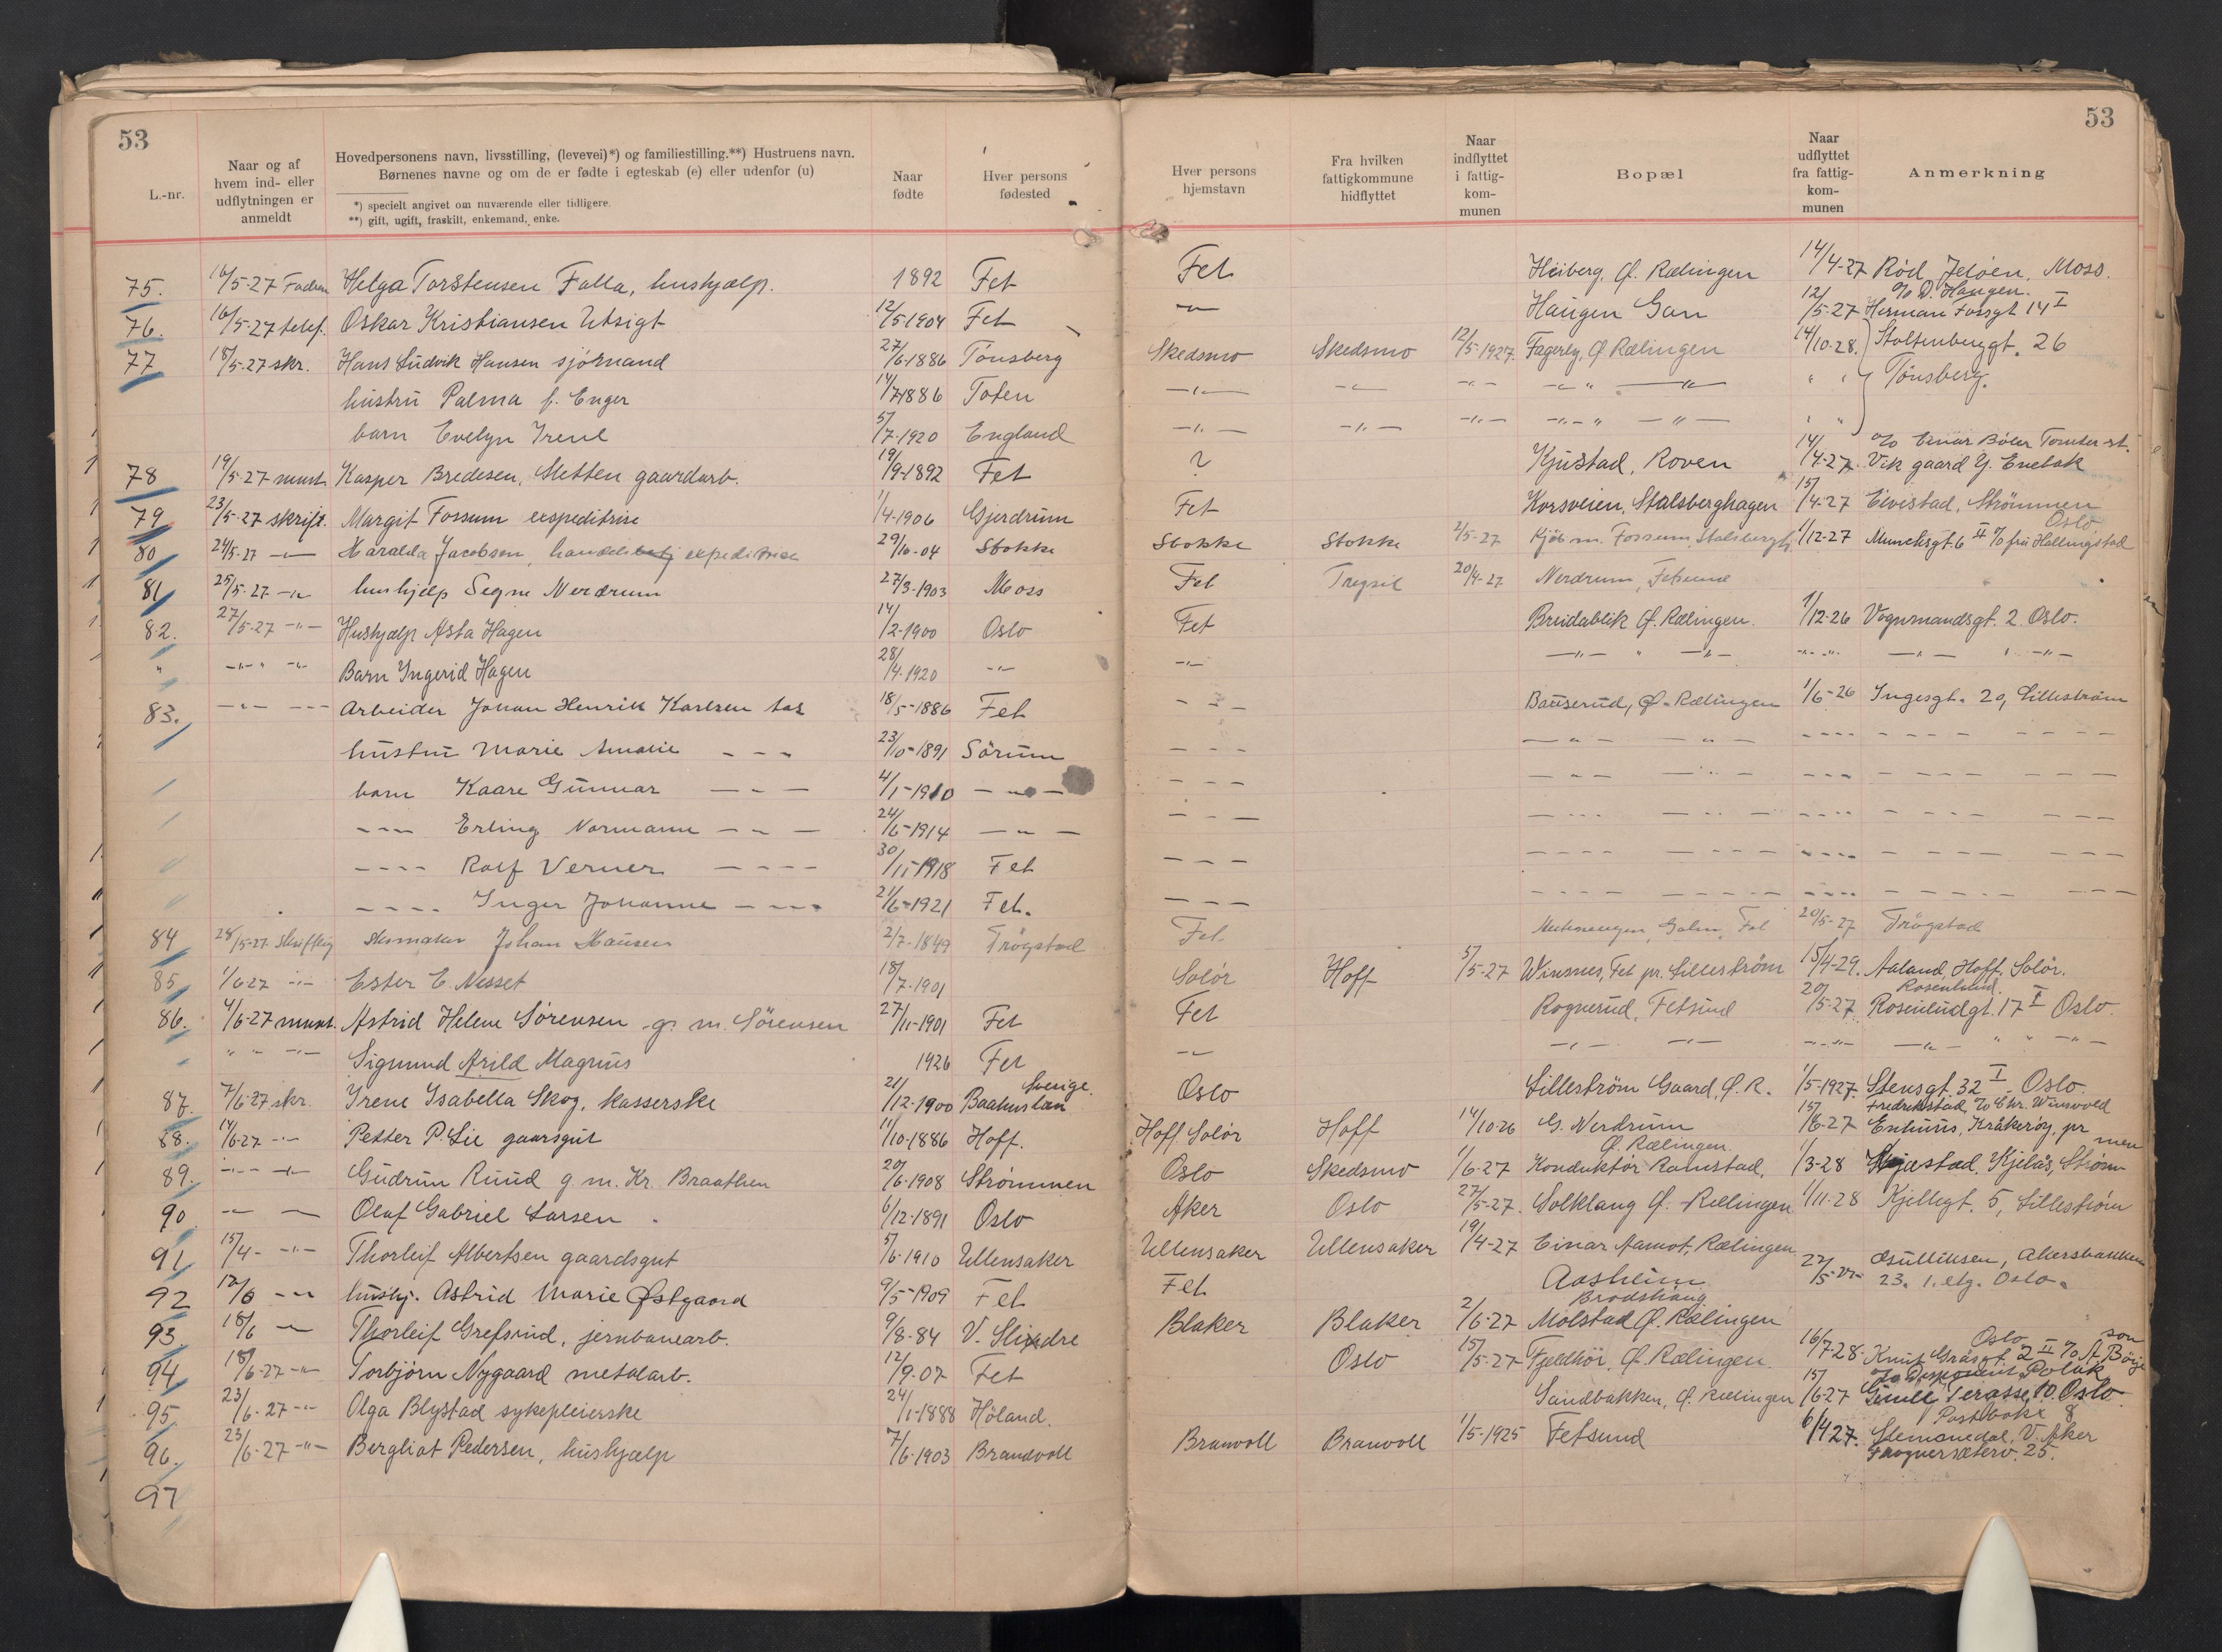 53
53
L.-nr.
Naar og af hvem ind- eller udflytningen er anmeldt
Hovedpersonens navn, livsstilling, (levevei)*) og familiestilling.**) Hustruens navn.
Børnenes navne og om de er fødte i egteskab (e) eller udenfor (u)
*) specielt angivet om nuværende eller tidligere.
**) gift, ugift, fraskilt, enkemand, enke.
Naar fødte
Hver persons fødested
Hver persons hjemstavn
Fra hvilken fattigkommune hidflyttet
Naar indflyttet i fattig-kom-munen
Bopæl
Naar udflyttet fra fattig-kom-munen
Anmerkning
75. 16/5-27 Helga Torstensen Falla, hushjælp. 1892 Fet Fet Heiberg, Ø. Rælingen 14/4-27 Rød, Jeløen, Moss.
76. 16/5-27 telef. Oskar Kristiansen Utsigt 12/5-1904 Fet -"- Haugen Gan 12/5-27 Herman Fossgt 14 I
77 18/5-27 skr. Hans Ludvik Hansen sjømand 27/6-1886 Tønsberg Skedsmo Skedsmo 12/5-1927. Fagerly, Ø Rælingen 14/10-28. Stoltenberggt. 26
hustru Palma f. Enger 14/7-1886 Toten -"- -"- -"- -"- " -"- " " Tønsberg.
barn Evelyn Irene 5/7-1920 England -"- -"- -"- -"- " -"- " "
78 19/5-27 munt. Kasper Bredesen, Sletten gaardarb. 19/9-1892 Fet ? Kjustad, Roven 14/4-27. c/o Einar Bøler Tomter st. Vik gaard Y. Enebak
79 23/5-27 skrift. Margit Fossum expeditrise 1/4-1906 Gjerdrum Fet Korsveien, Stalsberghagen 15/4-27 Eivistad, Strømmen
80 24/5-27 -"- Haralda Jacobsen, expeditrise 29/10-04 Stokke Stokke Stokke 2/5-27 Kjøbm. Fossum, Stalsbergh. 1/12-27 Munchsgt. 6 II c/o fru Hallingstad Oslo
81 25/5-27 -"- hushjelp Segne Nerdrum 27/3-1903 Moss Fet Trysil 20/4-27 Nerdrum, Fetsund
82. 27/5-27 -"- Hushjælp Asta Hagen 14/2-1900 Oslo Fet Breidablik Ø. Rælingen. 1/12-26 Vognmandsgt. 2. Oslo.
" -"- " -"- Barn Ingerid Hagen 28/4-1920 -"- -"- -"- " -"- -"- -"- -"- " -"-
83. -"- --- Arbeider Johan Henrik Karlsen 18/5-1886 Fet - - - Bauserud, Ø. Rælingen 1/6-26 Ingesgt. 20, Lillestrøm
hustru Marie Amalie - - - 23/10-1891 Sørum - - -
barn Kaare Gunnar - - - 4/1-1910 - " - - - -
---- Erling Normann - - - 24/6-1914 - " - - - -
---- Rolf Verner - - - - 30/11-1918 Fet - - -
---- Inger Johanne - - - - 21/6-1921 Fet. - - -
84 28/5-27 skriftlig skomaker Johan Hansen 2/7-1849 Trøgstad Fet Fet 20/5-27 Trøgstad
85 1/6 27 -"- Ester E. Nesset 18/7-1901 Solør Hoff 5/5-27 Winsnes, Fet pr. Lillestrøm 15/4-29. Aaland, Hoff, Solør.
86. 4/6-27 munt. Astrid Helene Sørensen g. m. Sørensen 27/11-1901 Fet Fet Rognerud, Fetsund 20/5-27. Rosenlund. Rosenludgt. 17 I Oslo.
" " -"- Sigmund Arild Magnus 1926 Fet -"- -"- -"- -"- -"- " " -"-
87. 7/6-27 skr. Irene Isabella Skog, kasserske 21/12-1900 Baahuslän Sverige Oslo Lillestrøm Gaard, Ø. R. 1/5-1927. Stensgt. 32 I Oslo.
88. 14/6-27 -"- Petter P. Lie gaarsgut 11/10-1886 Hoff. Hoff Solør Hoff 14/10-26 G. Nerdrum 15/6-27 Enhuus, Kråkerøy, pr Fredrikstad, c/o Chr. Winsvold
89. -"- -"- Gudrun Ruud g. m. Kr. Braathen 20/6-1908 Strømmen Oslo Skedsmo 1/6-27 Konduktør Ramstad, Ø. Rælingen 1/3-28 Kjelås, Strømmen
90 -"- -"- Olaf Gabriel Larsen 6/12-1891 Oslo Aker Oslo 27/5-27. Solklang Ø. Rælingen 1/11-28 Kjellegt. 5, Lillestrøm
91 15/4- -"- Thorleif Albertsen gaardsgut 5/6-1910 Ullensaker Ullensaker Ullensaker 19/4-27 Einar Aamot, Rælingen
92 12/6 -"- hushj. Astrid Marie Østgaard 9/5-1909 Fet Fet Aasheim 22/5-27 Akersbakken 23. 1. etg. Oslo.
93 18/6 -"- Thorleif Grefsrud, jernbanearb. 9/8-84 V. Slidre Blaker Blaker 2/6-27 Brodshaug Molstad Ø. Rælingen
94 18/6-27 -"- Torbjørn Nygaard metalarb. 12/9.07 Fet Oslo 15/5-27 Fjeldhöi, Ø. Rælingen. 16/7-28. Oslo Knut Gråsgt. 2 II c/o A. Børjeson
95 23/6-27 -"- Olga Blystad sykepleierske 24/1-1888 Høland. Sandbakken, Ø. Rælingen 15/6-27 c/o Disponent Polak Terasse 10. Oslo
96. 23/6-27 -"- Bergliot Pedersen, hushjælp 7/6-1903 Brandvoll Branvoll Branvoll 1/5-1925 Fetsund 6/4 27. Postboks 8 Slemdal, V. Aker Frognersæterv. 25.
97